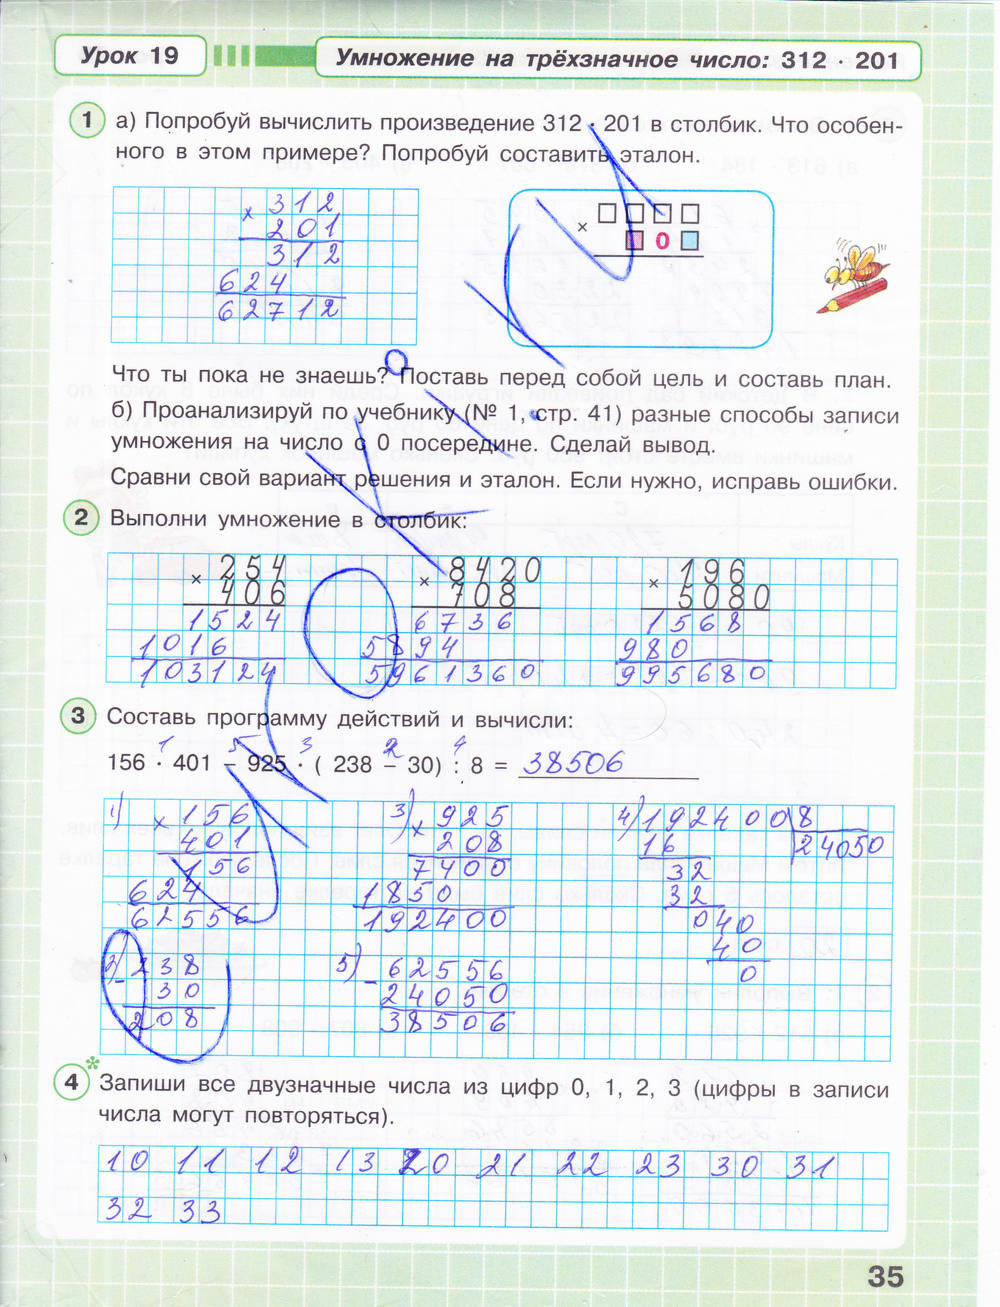 Урок 19
Умножение на трёхзначное число: 312 · 201
1 а) Попробуй вычислить произведение 312 · 201 в столбик. Что особен-
ного в этом примере? Попробуй составить эталон.
× 312
201
312
624
62712
×
0
Что ты пока не знаешь? Поставь перед собой цель и составь план.
б) Проанализируй по учебнику (№ 1, стр. 41) разные способы записи
умножения на число с 0 посередине. Сделай вывод.
Сравни свой вариант решения и эталон. Если нужно, исправь ошибки.
2 Выполни умножение в столбик:
× 254 × 8420 × 196
406 708 5080
1524 6736 1568
1016 5894 980
103124 5961360 995680
3 Составь программу действий и вычисли:
1 5 3 2 4
156 · 401 – 925 · ( 238 – 30) : 8 = 38506
1) × 156 3) × 925 4) 192400 8
401 208 16 24050
156 7400 32
624 1850 32
62556 192400 040
40
0
2) - 238 5) - 62556
30 24050
208 38506
4* Запиши все двузначные числа из цифр 0, 1, 2, 3 (цифры в записи
числа могут повторяться).
10 11 12 13 20 21 22 23 30 31
32 33
35